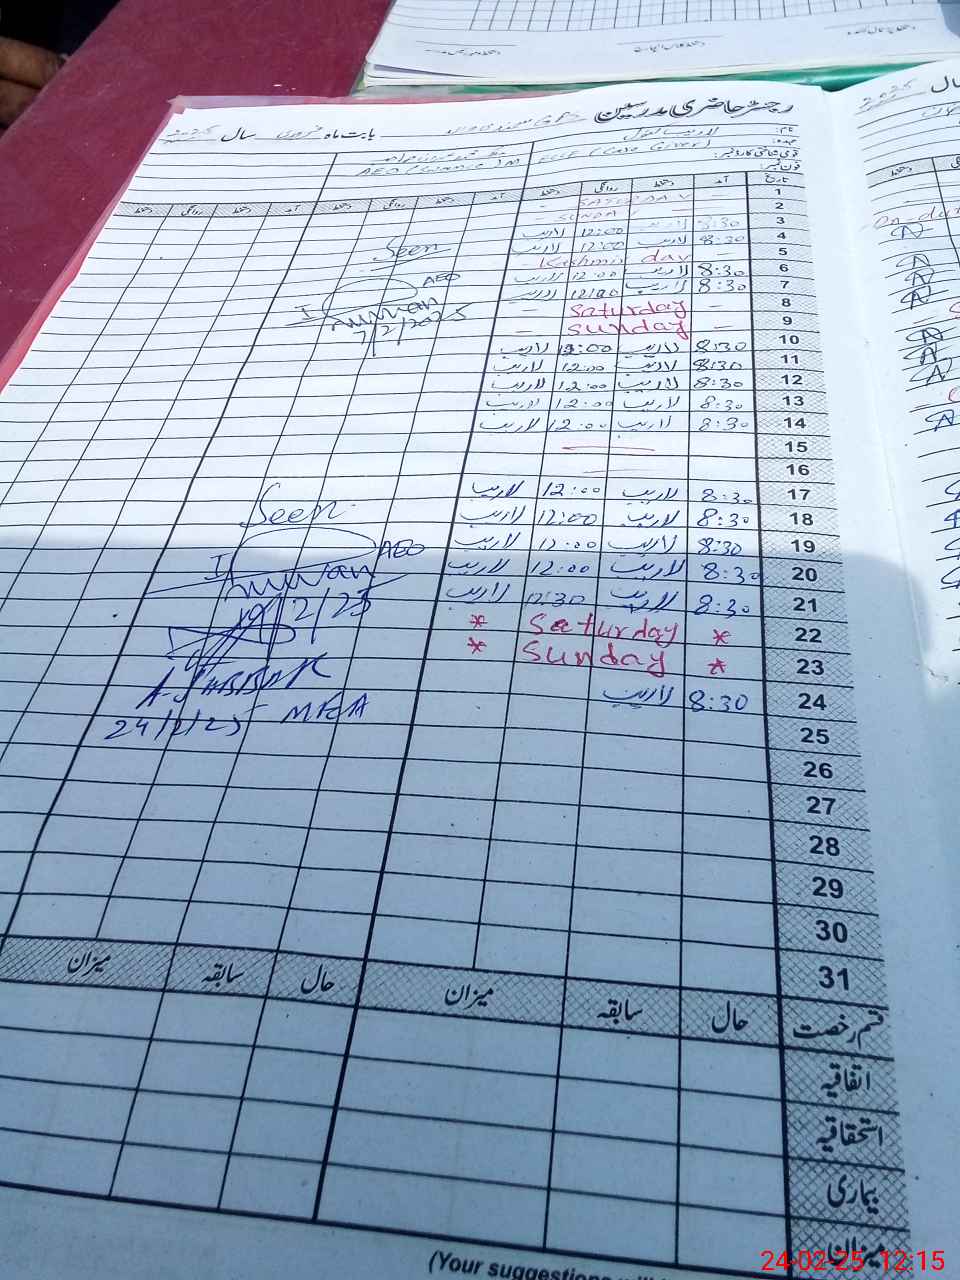 رجسٹر حاضری مدرسین
بابت ماہ فروری سال 2025
نام:
عہدہ: ECCE (Care Giver)
قومی شناختی کارڈ نمبر:
فون نمبر:
تاریخ آمد دستخط روانگی دستخط آمد دستخط روانگی دستخط آمد دستخط روانگی دستخط
1 SATURDAY
2 - SUNDAY
3 8:30 لاریب 12:00 لاریب
4 8:30 لاریب 12:00 لاریب
5 - Kashmir day -
6 8:30 لاریب 12:00 لاریب
7 8:30 لاریب 12:00 لاریب
8 - Saturday -
9 - Sunday -
10 8:30 لاریب 12:00 لاریب
11 8:30 لاریب 12:00 لاریب
12 8:30 لاریب 12:00 لاریب
13 8:30 لاریب 12:00 لاریب
14 8:30 لاریب 12:00 لاریب
15
16
17 8:30 لاریب 12:00 لاریب
18 8:30 لاریب 12:00 لاریب
19 8:30 لاریب 12:00 لاریب
20 8:30 لاریب 12:00 لاریب
21 8:30 لاریب 12:30 لاریب
22 * Saturday *
23 * Sunday *
24 8:30 لاریب
25
26
27
28
29
30
31
Seen
AEO
7/2/2025
Seen
AEO
19/2/25
A. JABBAR
24/2/25 MEA
قسم رخصت حال سابقہ میزان حال سابقہ میزان
اتفاقیہ
استحقاقیہ
بیماری
میزان
(Your suggestions will
سال 2025
24-02-25 12:15